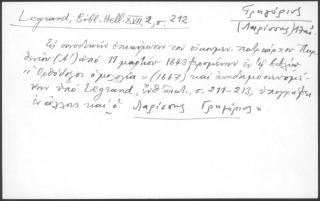 Legrand, Bibl. Hell. XVII, 2, σ. 212
Γρηγόριος
(Λαρίσσης)
Τῷ συνοδικῷ ὑπομνήματι τοῦ οἰκουμ. πατριάρχου Παρ-
θενίου (Α') ἀπὸ 11 μαρτίου 1643 φερομένῳ ἐν τῷ βιβλίῳ
« Ὀρθόδοξος ὁμολογία » (1667) καὶ ἀναδημοσιευομέ-
νῳ ὑπὸ Legrand, ἔνθ' ἀνωτ., σ. 211-213, ὑπογράφει
ἐν ἄλλοις καὶ ὁ Λαρίσσης Γρηγόριος »